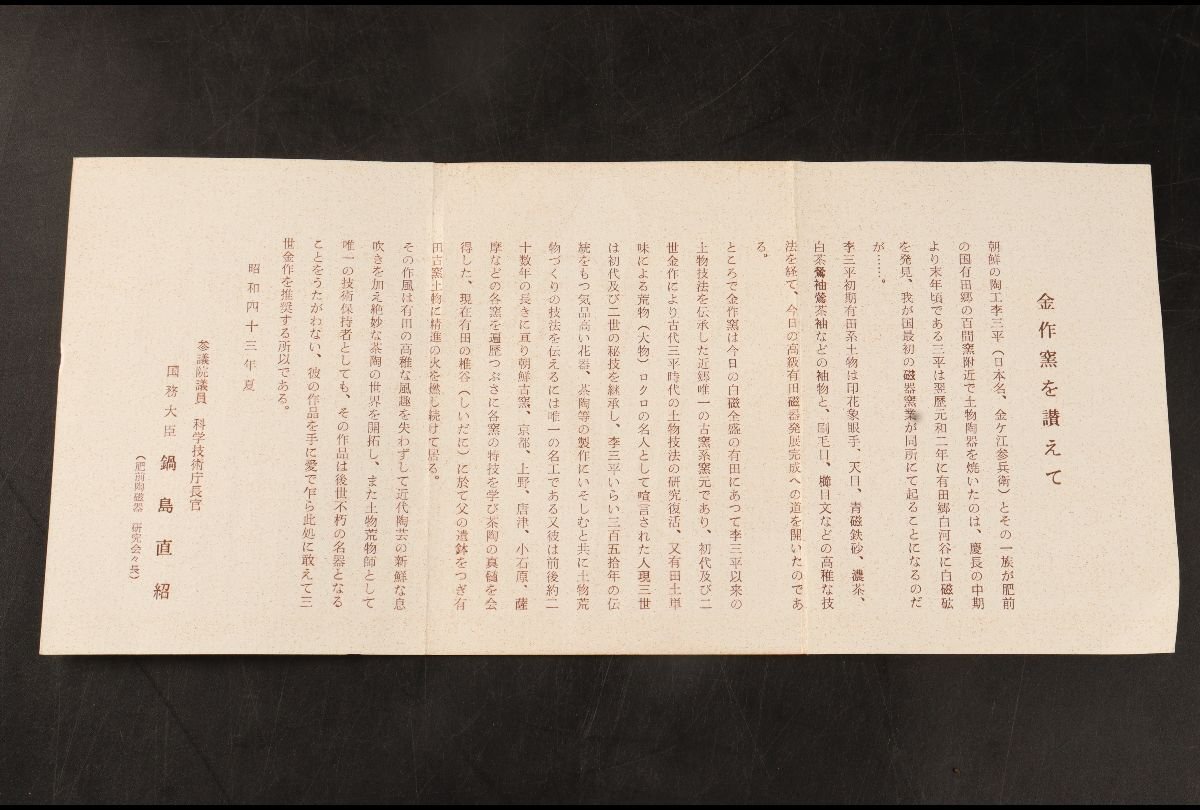 金作窯を讃えて
朝鮮の陶工李三平(日本名、金ケ江参兵衛)とその一族が肥前
の国有田郷の百間窯附近で土物陶器を焼いたのは、慶長の中期
より末年頃である三平は翌歴元和二年に有田郷白河谷に白磁砿
を発見、我が国最初の磁器窯業が同所にて起ることになるのだ
が……。
李三平初期有田系土物は印花象眼手、天目、青磁鉄砂、濃茶、
白茶鶯袖鶯茶袖などの袖物と、刷毛目、櫛目文などの高稚な技
法を経て、今日の高級有田磁器発展完成への道を開いたのであ
る。
ところで金作窯は今日の白磁全盛の有田にあつて李三平以来の
土物技法を伝承した近郷唯一の古窯系窯元であり、初代及び二
世金作により古代三平時代の土物技法の研究復活、又有田土単
味による荒物(大物)ロクロの名人として喧言された人現三世
は初代及び二世の秘技を継承し、李三平いらい三百五拾年の伝
統をもつ気品高い花器、茶陶等の製作にいそしむと共に土物荒
物づくりの技法を伝えるには唯一の名工である又彼は前後約二
十数年の長きに亘り朝鮮古窯、京都、上野、唐津、小石原、薩
摩などの各窯を遍歴つぶさに各窯の特技を学び茶陶の真髄を会
得した、現在有田の椎谷(しいだに)に於て父の遺鉢をつぎ有
田古窯土物に精進の火を燃し続けて居る。
その作風は有田の高稚な風趣を失わずして近代陶芸の新鮮な息
吹きを加え絶妙な茶陶の世界を開拓し、また土物荒物師として
唯一の技術保持者としても、その作品は後世不朽の名器となる
ことをうたがわない、彼の作品を手に愛で乍ら此処に敢えて三
世金作を推奨する所以である。
昭和四十三年夏
参議院議員 科学技術庁長官
国務大臣 鍋島直紹
(肥前陶磁器 研究会々長)